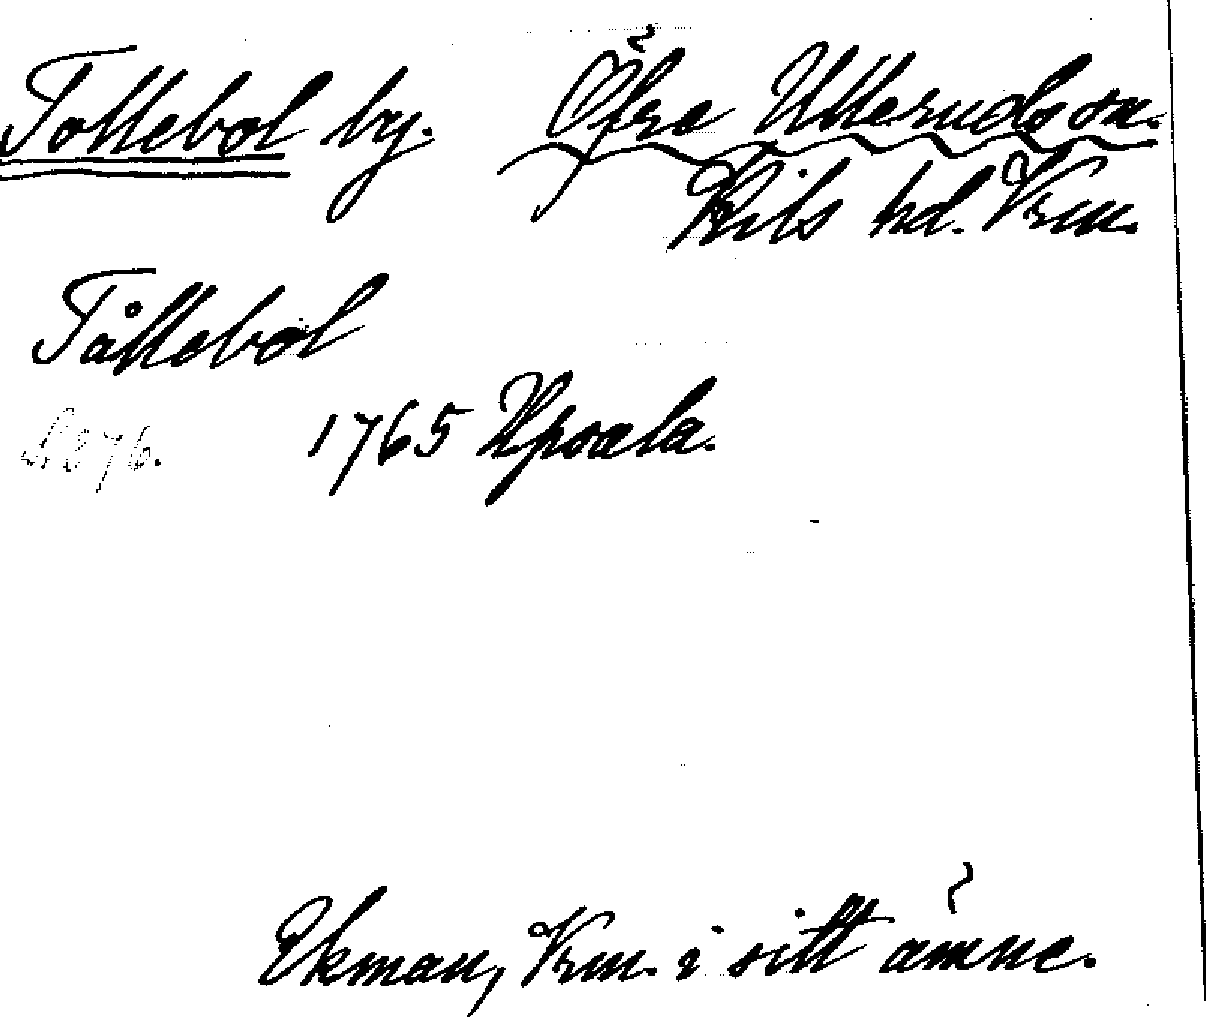 Tollebol by. Öfre Ulleruds sn.
Kils hd. Vrm.
Tållebol
1765 Upsala.
S. 276.
Ekman, Vrm. i sitt ämne.